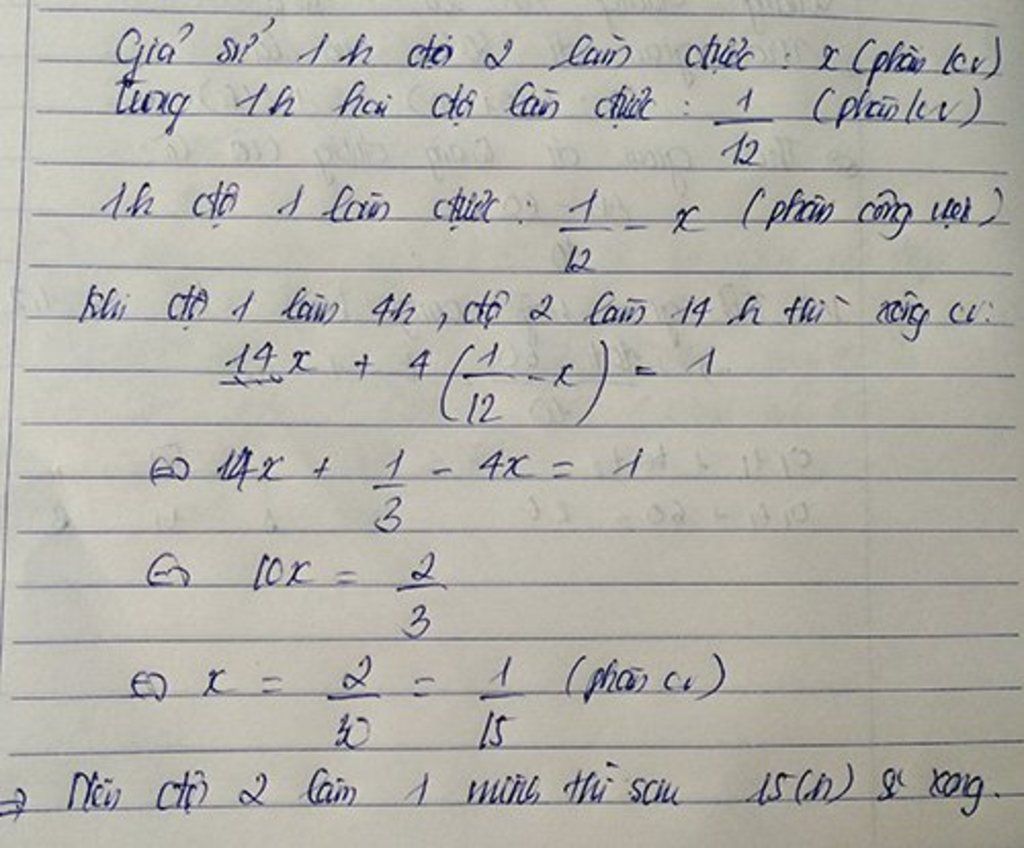 Giả sử 1h đội 2 làm được : x (phần cv)
Trong 1h hai đội làm được : 1/12 (phần cv)
1h đội 1 làm được : 1/12 - x (phần công việc)
Khi đội 1 làm 4h, đội 2 làm 14h thì xong cv:
14x + 4(1/12 - x) = 1
⇔ 14x + 1/3 - 4x = 1
⇔ 10x = 2/3
⇔ x = 2/30 = 1/15 (phần cv)
⇒ Nếu đội 2 làm 1 mình thì sau 15(h) sẽ xong.